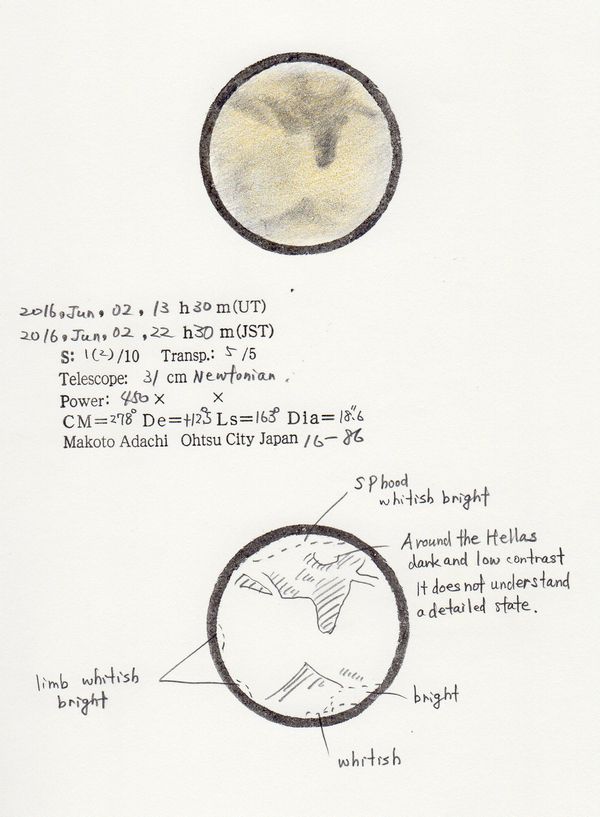 2016, Jun, 02, 13 h 30 m (UT)
2016, Jun, 02, 22 h 30 m (JST)
S: 1(2)/10 Transp.: 5/5
Telescope: 31 cm Newtonian.
Power: 450 × ×
CM=278° De=+12.5° Ls=163° Dia=18".6
Makoto Adachi Ohtsu City Japan 16-86
SP hood
whitish bright
Around the Hellas
dark and low contrast
It does not understand
a detailed state.
limb whitish
bright
bright
whitish